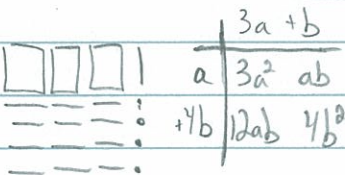 3a + b
a 3a² ab
+4b 12ab 4b²